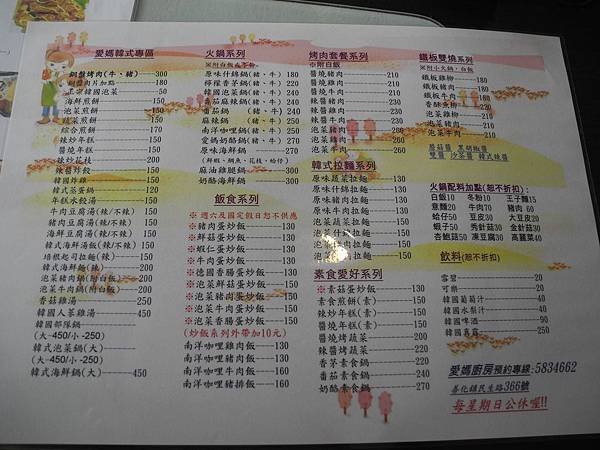 愛媽韓式專區
銅盤烤肉(牛、豬)------300
銅盤肉片加點------150
正宗韓國泡菜------50
海鮮煎餅------150
泡菜煎餅------150
蔬菜煎餅------150
綜合煎餅------170
辣炒年糕------150
醬燒年糕------150
辣炒花枝------200
韓國炸雞------150
韓式蒸蛋鍋------120
年糕水餃湯------150
牛肉豆腐湯(辣/不辣) 150
豬肉豆腐湯(辣/不辣) 150
海鮮豆腐湯(辣/不辣) 150
韓式海鮮湯飯(辣/不辣) 150
培根起司拉麵(辣)------150
韓式海鮮麵(辣)------150
泡菜豬肉鍋(附白飯)------150
泡菜牛肉鍋(附白飯)------150
香菇雞湯------250
韓國人蔘雞湯------450
韓國部隊鍋------
(大-450/小-250)
韓式泡菜鍋(大)------
(大-450/小-250)
韓式海鮮鍋(大)------450
火鍋系列
※附白飯或冬粉
原味什錦鍋(豬、牛) 180
檸檬香茅鍋(豬、牛) 240
韓國泡菜鍋(豬、牛) 240
番茄麻辣鍋(豬、牛) 250
番茄鍋 (豬、牛) 240
麻辣鍋 (豬、牛) 250
南洋咖哩鍋(豬、牛) 240
愛媽奶酪鍋(豬、牛) 270
原味海鮮鍋------300
(鮮蝦、鯛魚、花枝、蛤仔)
麻油雞腿鍋------250
奶酪海鮮鍋------300
飯食系列
※週六及國定假日恕不供應
※豬肉蛋炒飯------130
※鮮菇蛋炒飯------130
※蝦仁蛋炒飯------130
※牛肉蛋炒飯------130
※德國香腸蛋炒飯------130
※泡菜鮮菇蛋炒飯------130
※泡菜豬肉蛋炒飯------130
※泡菜牛肉蛋炒飯------130
※泡菜香腸蛋炒飯------130
(炒飯系列外帶加10元)
南洋咖哩雞肉飯------130
南洋咖哩豬肉飯------130
南洋咖哩牛肉飯------160
南洋咖哩豬排飯------160
烤肉套餐系列
※附白飯
醬燒豬肉------210
醬燒雞肉------210
醬燒牛肉------230
辣醬豬肉------210
辣醬雞肉------210
辣醬牛肉------230
泡菜豬肉------210
泡菜雞肉------210
泡菜牛肉------230
韓式拉麵系列
原味蔬菜拉麵------130
原味什錦拉麵------130
原味豬肉拉麵------130
原味牛肉拉麵------130
原味海鮮拉麵------150
泡菜蔬菜拉麵------150
泡菜豬肉拉麵------150
泡菜牛肉拉麵------150
泡菜海鮮拉麵------150
素食愛好系列
※素菇蛋炒飯------130
素食煎餅(素)------150
辣炒年糕(素)------150
醬燒年糕(素)------150
醬燒烤蔬菜------150
辣醬烤蔬菜------220
香茅素食鍋------220
番茄素食鍋------240
奶酪素食鍋------260
鐵板雙燒系列
※附小火鍋、白飯
鐵板雞柳------180
鐵板豬肉------180
鐵板牛肉------180
香酥魚柳------190
泡菜雞柳------190
泡菜豬肉------190
泡菜牛肉------190
蘑菇醬 黑胡椒醬
雙醬 沙茶醬 韓式辣醬
火鍋配料加點(恕不折扣):
白飯10 冬粉10 王子麵15
意麵20 牛肉70 豬肉 60
蛤仔50 豆皮30 大豆皮20
蝦子50 秀針菇30 金針菇30
杏鮑菇50 凍豆腐30 高麗菜40
飲料(恕不折扣)
雪碧------20
可樂------20
韓國葡萄汁------40
韓國水梨汁------40
韓國啤酒------90
韓國真露------250
愛媽廚房預約專線:5834662
善化鎮民生路366號
每星期日公休喔!!